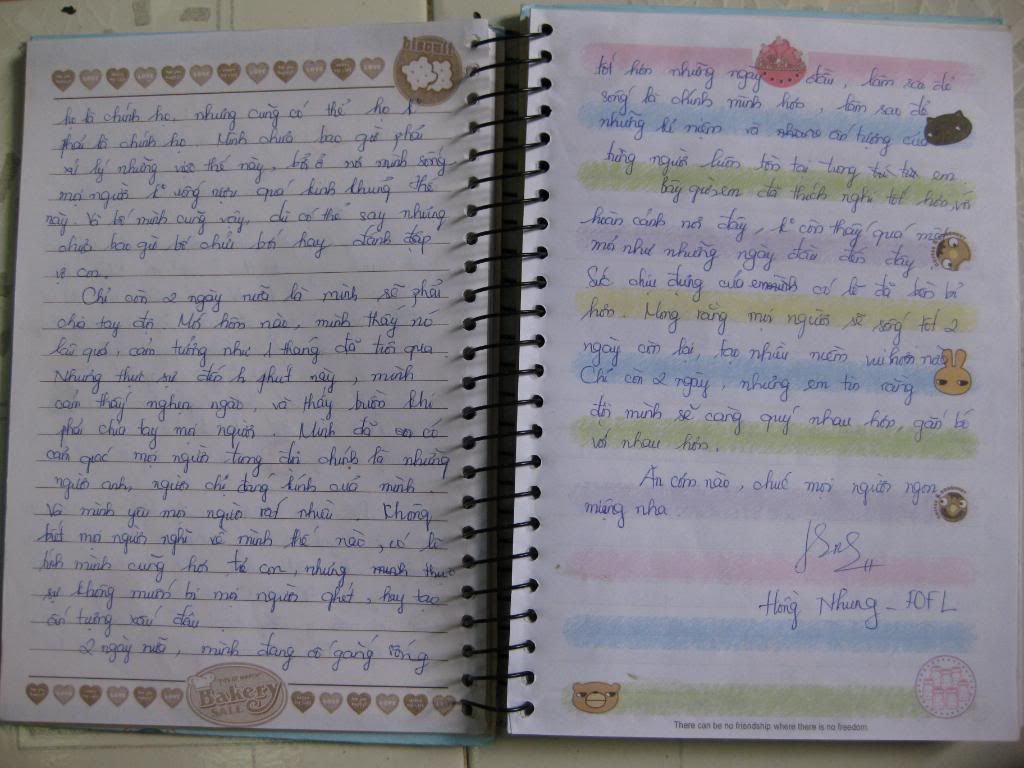 biscuit
LOVE LOVE LOVE LOVE LOVE
họ là chính họ, nhưng cũng có thể họ k
phải là chính họ. Mình chưa bao giờ phải
xử lý những việc thế này, bởi ở nơi mình sống
mọi người k uống rượu quá kinh khủng thế
này. Và bố mình cũng vậy, dù có thể say nhưng
chưa bao giờ bố chửi bới hay đánh đập
vợ con.
Chỉ còn 2 ngày nữa là mình sẽ phải
chia tay đội. Mới hôm nào, mình thấy nó
lâu quá, cảm tưởng như 1 tháng đã trôi qua
Nhưng thực sự đến h phút này, mình
cảm thấy nghẹn ngào, và thấy buồn khi
phải chia tay mọi người. Mình đã có
cảm giác mọi người trong đội chính là những
người anh, người chị đáng kính của mình.
Và mình yêu mọi người rất nhiều. Không
biết mọi người nghĩ về mình thế nào, có lẽ
tính mình cũng hơi trẻ con, nhưng mình thực
sự không muốn bị mọi người ghét, hay tạo
ấn tượng xấu đâu
2 ngày nữa, mình đang cố gắng sống
Bakery
SALE
tốt hơn những ngày đầu, làm sao để
sống là chính mình hơn, làm sao để
những kỉ niệm và những ấn tượng của
từng người luôn tồn tại trong em
bây giờ em đã thích nghi tốt hơn với
hoàn cảnh nơi đây, k còn thấy quá mệt
mỏi như những ngày đầu đến đây.
Sức chịu đựng của em có lẽ đã bền bỉ
hơn. Mong rằng mọi người sẽ sống tốt 2
ngày còn lại, tạo nhiều niềm vui hơn nữa
Chỉ còn 2 ngày, nhưng em tin rằng
đội mình sẽ càng quý nhau hơn, gắn bó
với nhau hơn.
Ăn cơm nào, chúc mọi người ngon
miệng nha.
Hồng Nhung - FOFL
There can be no friendship where there is no freedom.